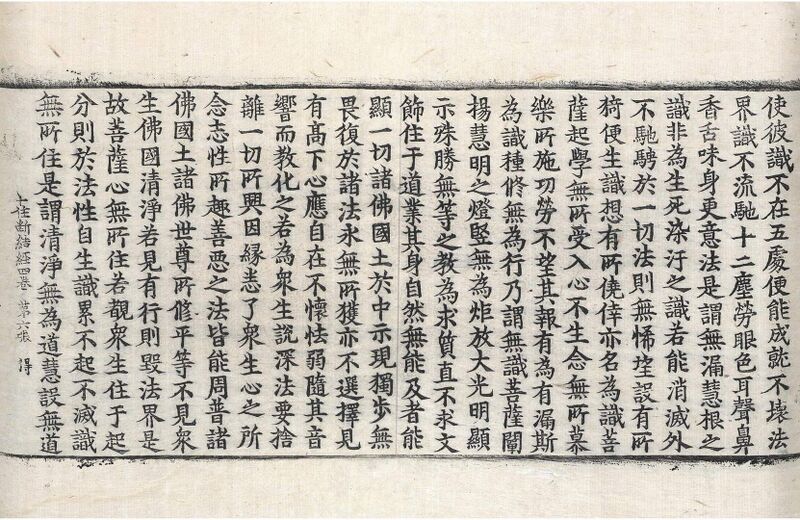 使彼識不在五處便能成就不壞法
界識不流馳十二塵勞眼色耳聲鼻
香舌味身更意法是謂無漏慧根之
識非為生死染汙之識若能消滅外
不馳騁於一切法則無悕望設有所
猗便生識想有所僥倖亦名為識菩
薩起學無所受入心不生念無所慕
樂所施功勞不望其報有為有漏斯
為識種修無為行乃謂無識菩薩闡
揚慧明之燈堅無為炬放大光明顯
示殊勝無等之教為求質直不求文
飾住于道業其身自然無能及者能
顯一切諸佛國土於中示現獨步無
畏復於諸法永無所獲亦不選擇見
有高下心應自在不懷怯弱隨其音
響而教化之若為衆生說深法要捨
離一切所興因緣悉了衆生心之所
念志性所趣善惡之法皆能周普諸
佛國土諸佛世尊所修平等不見衆
生佛國清淨若見有行則毀法界是
故菩薩心無所住若觀衆生住于起
分則於法性自生識累不起不滅識
無所住是謂清淨無為道慧設無道
十住斷結經四卷 第六張 得